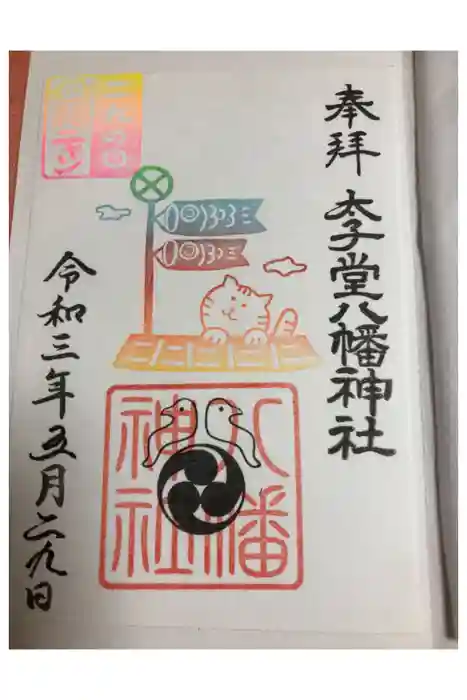 奉拝
太子堂八幡神社
八幡
神社
令和三年五月二九日